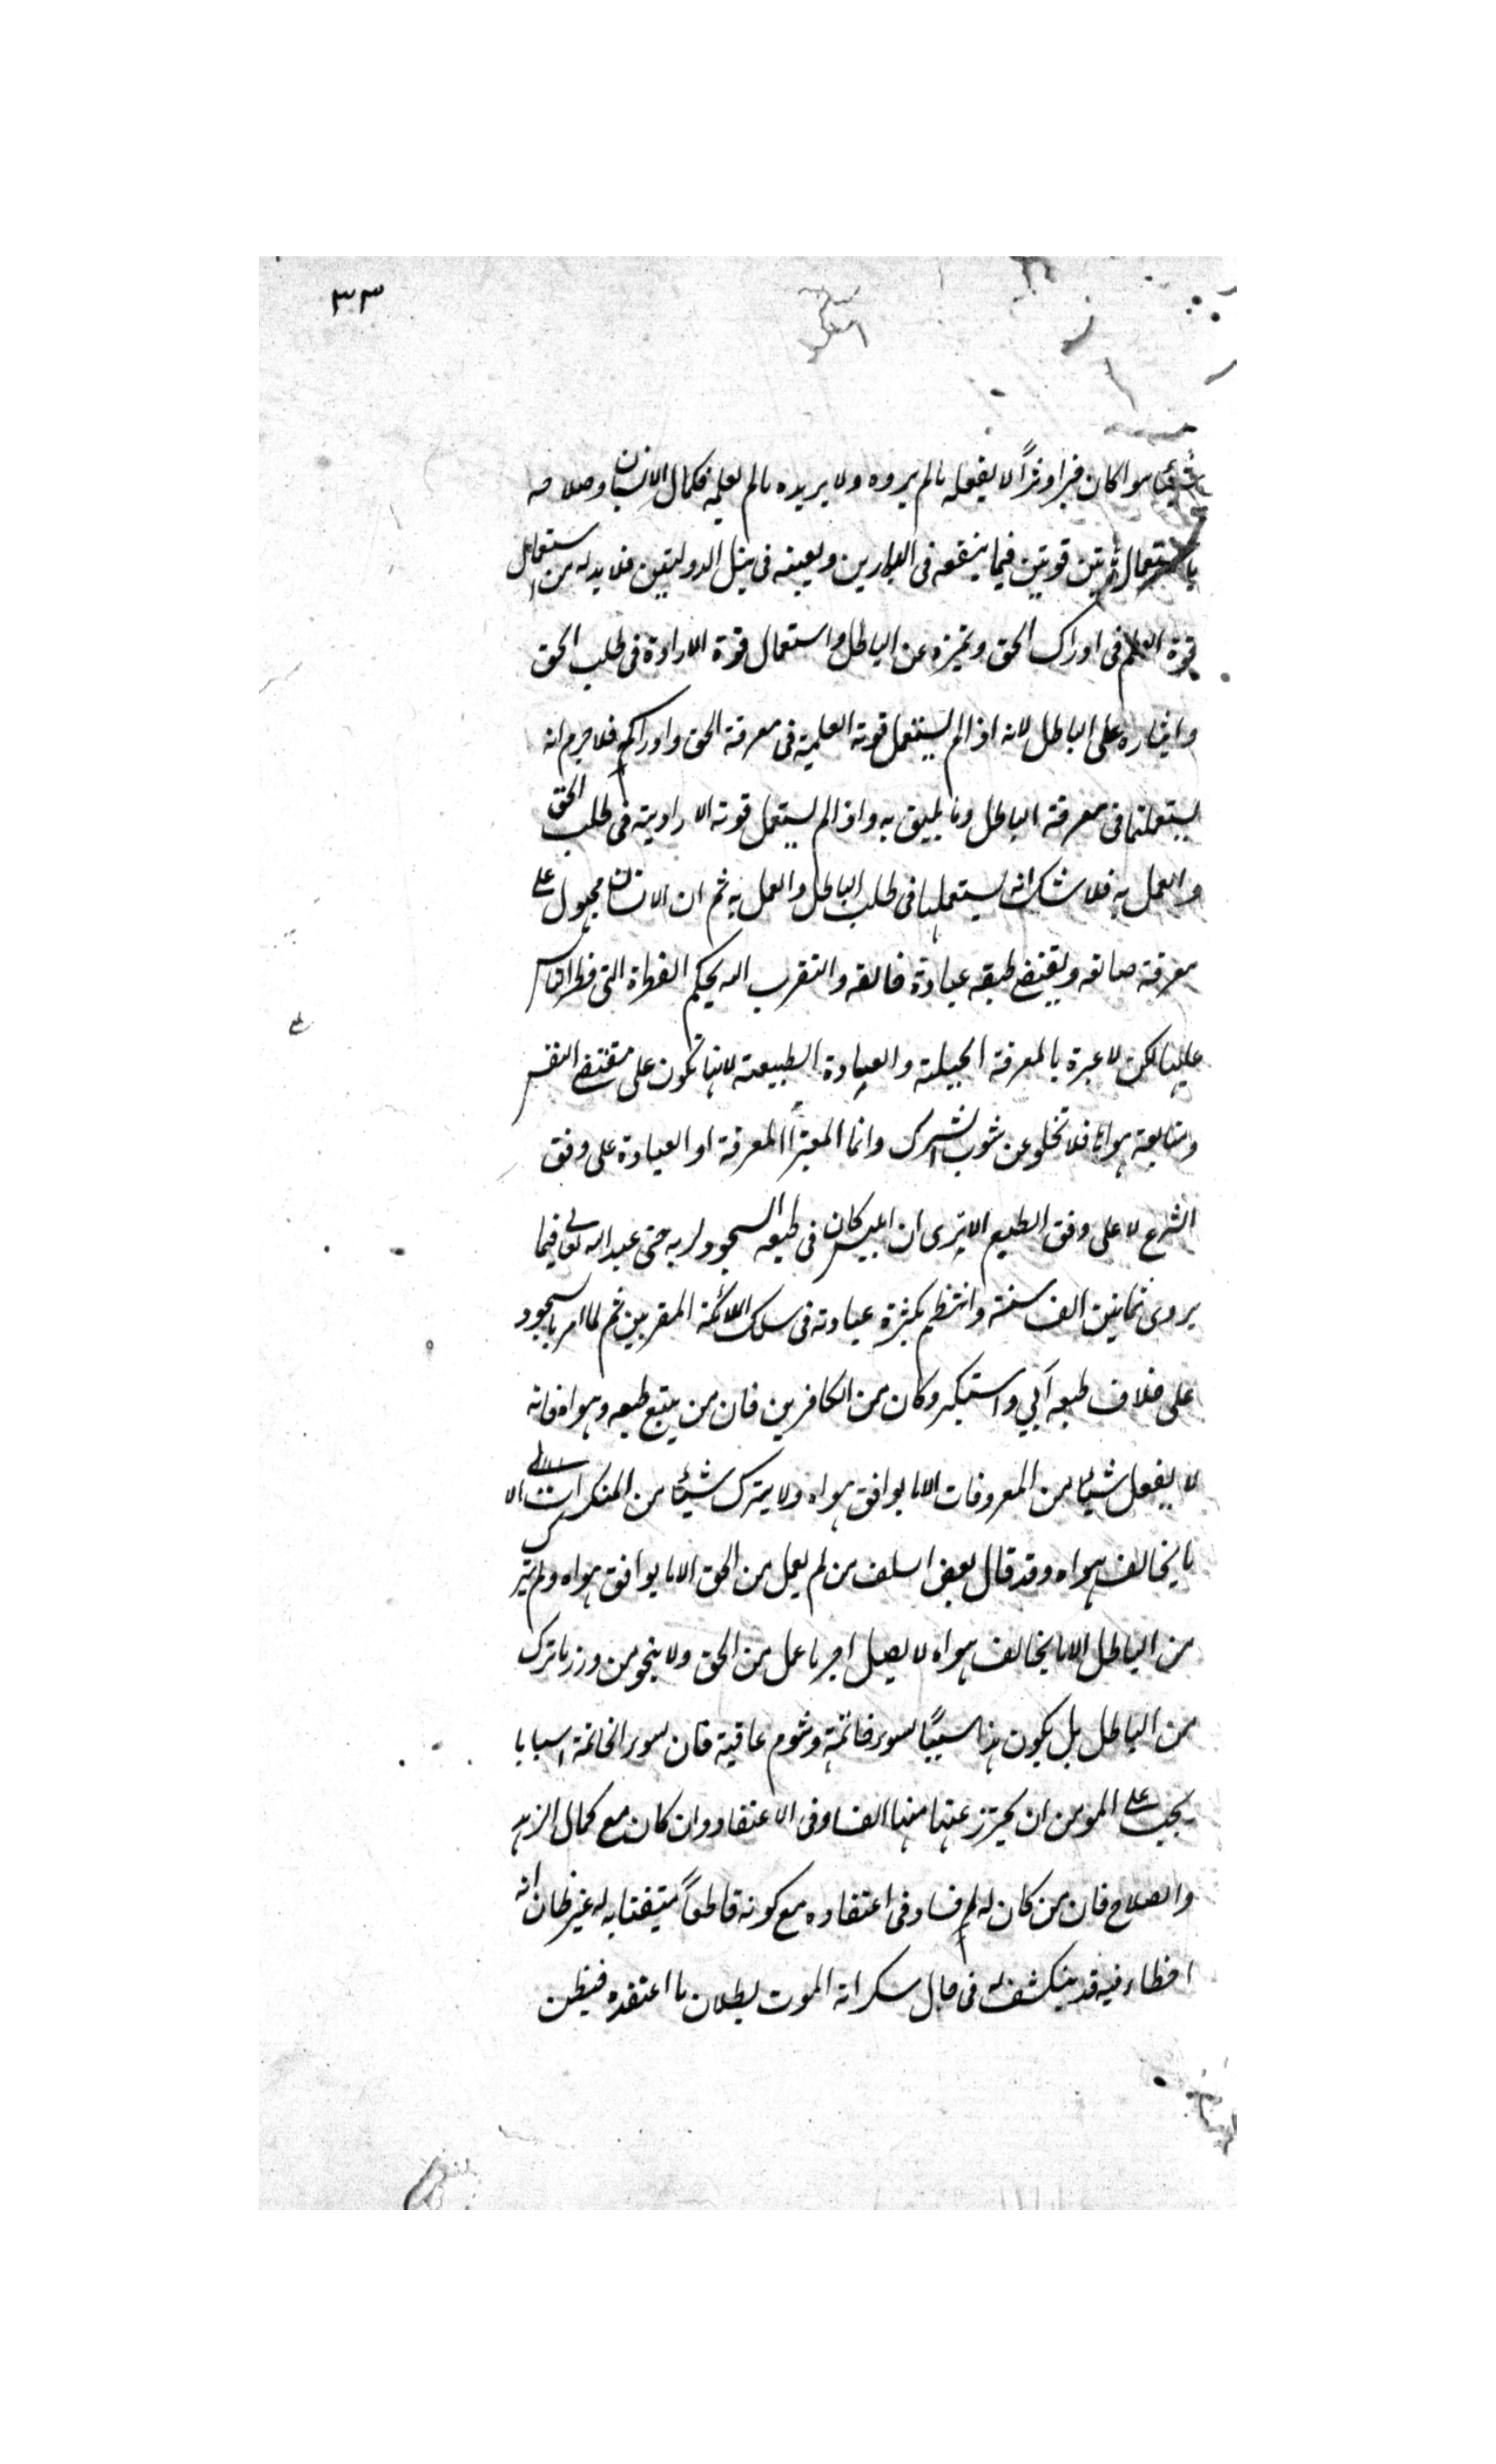 ٣٣
شيئا سواء كان خيرا او شرًا لا يفعله ما لم يرده ولا يريده ما لم يعلمه فكمال الانسان وصلاحه
باستعمال قوتين فيما ينفعه فى الدارين ويعينه فى نيل الدولتين فلا بد له من استعمال
قوة العلم فى ادراك الحق وتميزه عن الباطل واستعمال قوة الارادة فى طلب الحق
وايثاره على الباطل لانه اذا لم يستعمل قوته العلمية فى معرفة الحق وادراكه فلا جرم انه
يستعملها فى معرفة الباطل وما يليق به واذا لم يستعمل قوته الارادية فى طلب الحق
والعمل به فلا شك انه يستعملها فى طلب الباطل والعمل به ثم ان الانسان مجبول على
معرفة صانعه ويقتضى طبعه عبادة خالقه والتقرب اليه بحكم الفطرة التى فطر الناس
عليها لكن لا عبرة بالمعرفة الجبلية والعبادة الطبيعية لانها تكون على مقتضى النفس
ومتابعة هواها فلا تخلو عن شوب الشرك وانما المعتبر المعرفة او العبادة على وفق
الشرع لا على وفق الطبع الا يرى ان ابليس كان فى طبعه السجود لربه حتى عبد الله تعالى فيما
يروى ثمانين الف سنة وانتظم بكثرة عبادته فى سلك الملائكة المقربين ثم لما امر بالسجود
على خلاف طبعه أبي واستكبر وكان من الكافرين فان من يتبع طبعه وهواه فانه
لا يفعل شيئا من المعروفات الا ما يوافق هواه ولا يترك شيئا من المنكرات الا
ما يخالف هواه وقد قال بعض السلف من لم يعمل من الحق الا ما يوافق هواه ولم يترك
من الباطل الا ما يخالف هواه لا يصل اجر ما عمل من الحق ولا ينجو من وزر ما ترك
من الباطل بل يكون هذا سببًا لسوء خاتمته وشوم عاقبته فان لسوء الخاتمة اسبابا
يجب على المومن ان يحترز عنها منها الفساد فى الاعتقاد وان كان مع كمال الزهد
والصلاح فان من كان له فساد فى اعتقاده مع كونه قاطعًا متيقنا به له غير ظان انه
اخطاء فيه قد ينكشف له فى حال سكراته الموت بطلان ما اعتقده فيظن